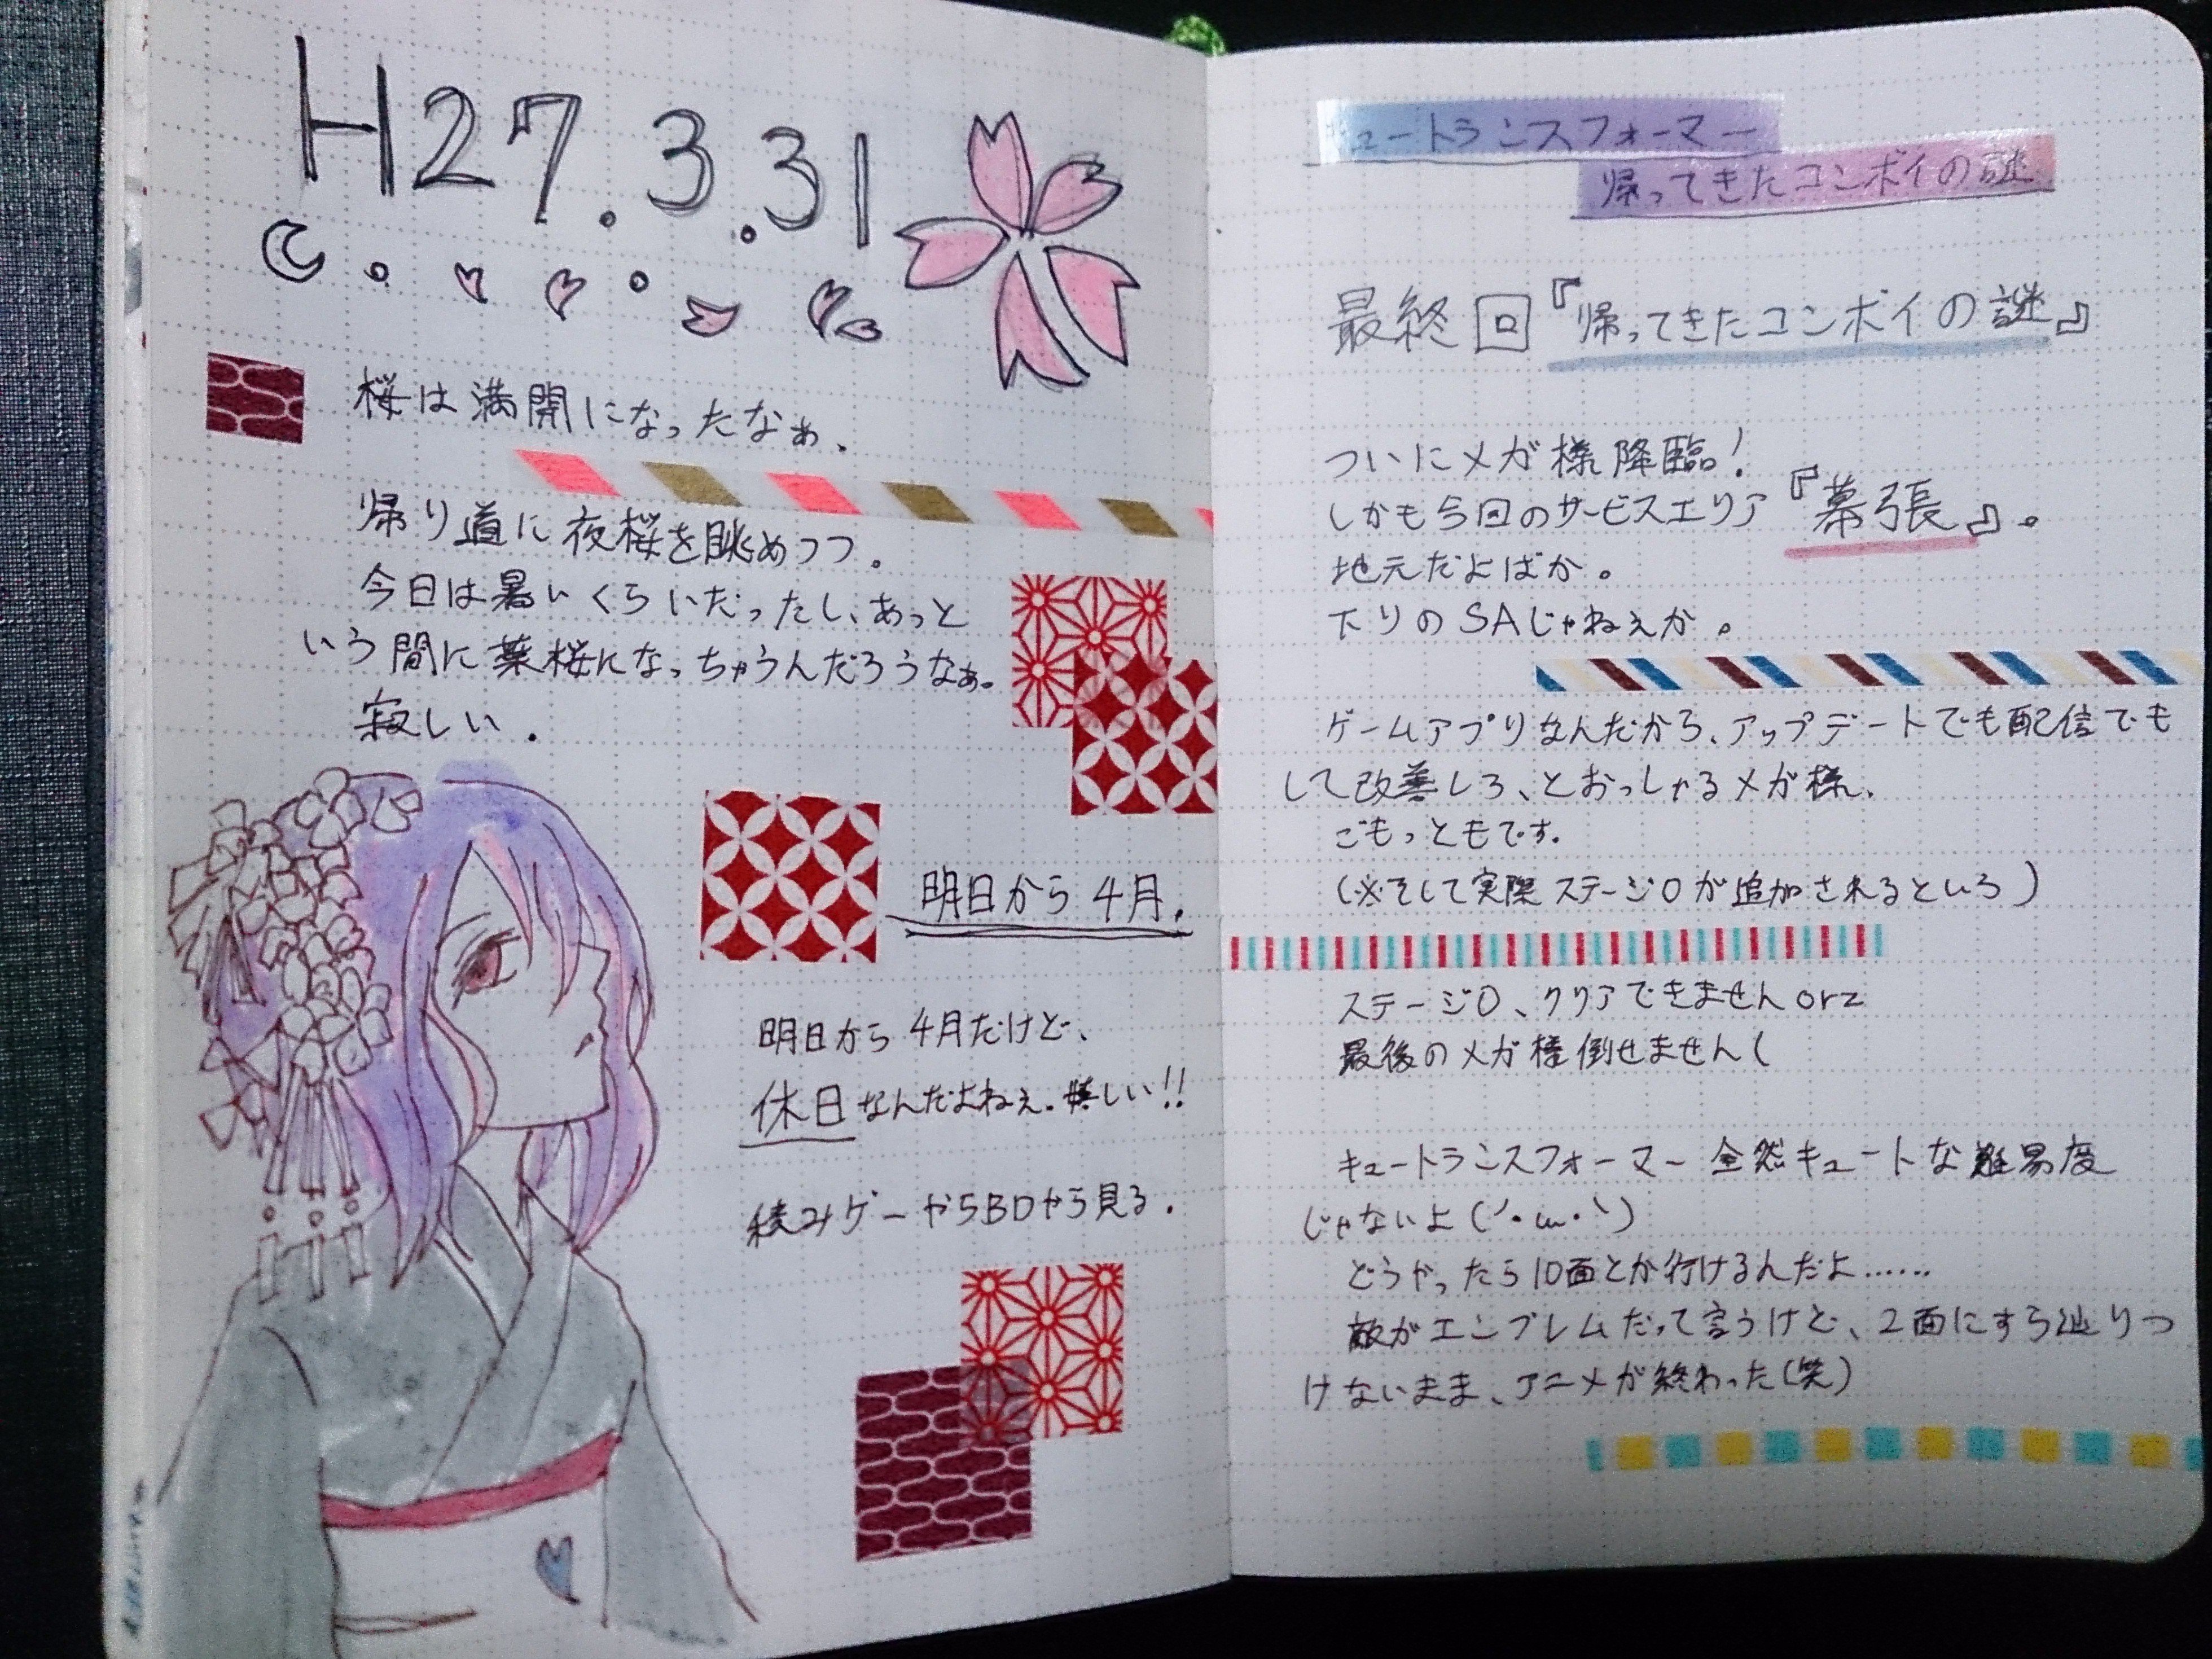 H27.3.31
桜は満開になったなぁ、
帰り道に夜桜を眺めつつ。
今日は暑いくらいだったし、あっと
いう間に葉桜になっちゃうんだろうなぁ。
寂しい。
明日から4月。
明日から4月だけど、
休日なんだよねぇ。嬉しい!!
積みゲーやらBDから見る。
キュートランスフォーマー
帰ってきたコンボイの謎
最終回『帰ってきたコンボイの謎』
ついにメガ様降臨!
しかも今回のサービスエリア『幕張』。
地元だよばか。
下りのSAじゃねぇか。
ゲームアプリなんだから、アップデートでも配信でも
して改善しろ、とおっしゃるメガ様、
ごもっともです。
(※そして実際ステージ0が追加されるという)
ステージ0、クリアできませんorz
最後のメガ様倒せません(
キュートランスフォーマー全然キュートな難易度
じゃないよ(´・ω・`)
どうやったら10面とか行けるんだよ……
敵がエンブレムだって言うけど、2面にすら辿りつ
けないまま、アニメが終わった(笑)